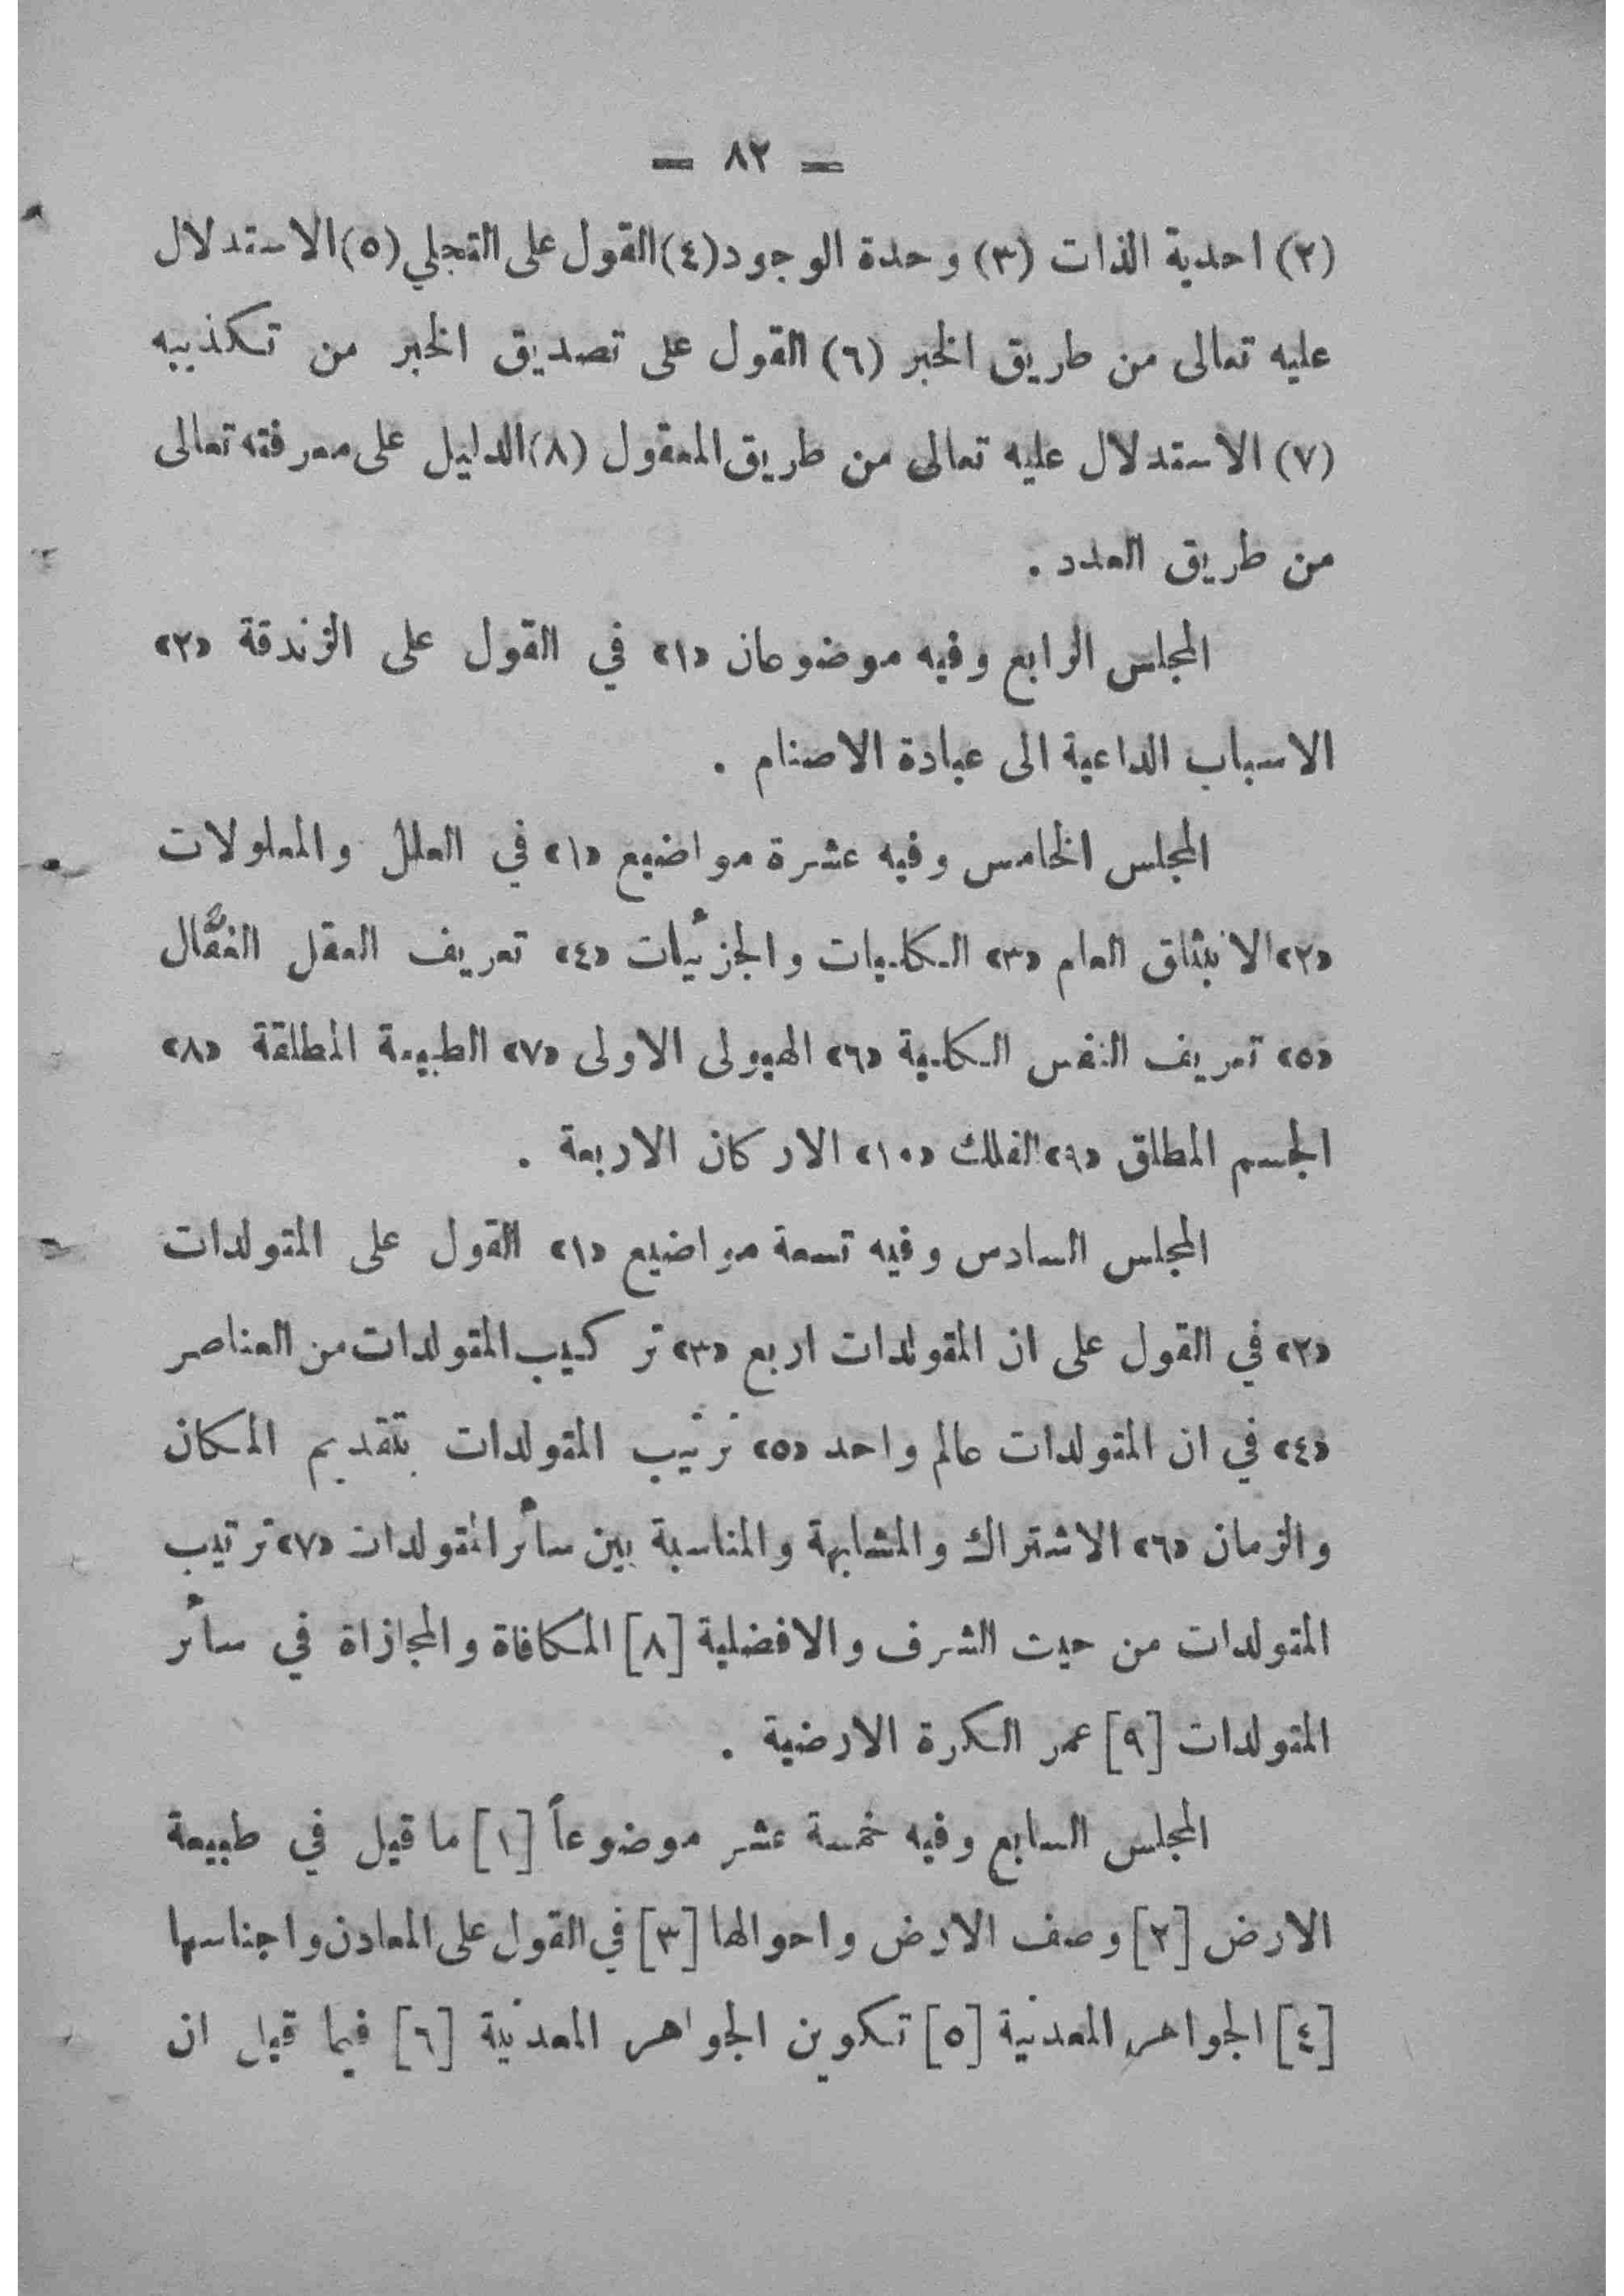 — ٨٢ —
(٢) احدية الذات (٣) وحدة الوجود (٤) القول على التجلي (٥) الاستدلال
عليه تعالى من طريق الخبر (٦) القول على تصديق الخبر من تكذيبه
(٧) الاستدلال عليه تعالى من طريق المعقول (٨) الدليل على معرفته تعالى
من طريق العدد .
المجلس الرابع وفيه موضوعان «١» في القول على الزندقة «٢»
الاسباب الداعية الى عبادة الاصنام .
المجلس الخامس وفيه عشرة مواضيع «١» في العلل والمعلولات
«٢» الانبثاق العام «٣» الكليات والجزئيات «٤» تعريف العقل الفعَّال
«٥» تعريف النفس الكلية «٦» الهيولى الاولى «٧» الطبيعة المطلقة «٨»
الجسم المطلق «٩» الفلك «١٠» الاركان الاربعة .
المجلس السادس وفيه تسعة مواضيع «١» القول على المتولدات
«٢» في القول على ان المتولدات اربع «٣» تركيب المتولدات من العناصر
«٤» في ان المتولدات عالم واحد «٥» ترتيب المتولدات بتقديم المكان
والزمان «٦» الاشتراك والمشابهة والمناسبة بين سائر المتولدات «٧» ترتيب
المتولدات من حيث الشرف والافضلية [٨] المكافاة والمجازاة في سائر
المتولدات [٩] عمر الكرة الارضية .
المجلس السابع وفيه خمسة عشر موضوعاً [١] ما قيل في طبيعة
الارض [٢] وصف الارض واحوالها [٣] في القول على المعادن واجناسها
[٤] الجواهر المعدنية [٥] تكوين الجواهر المعدنية [٦] فيما قيل ان